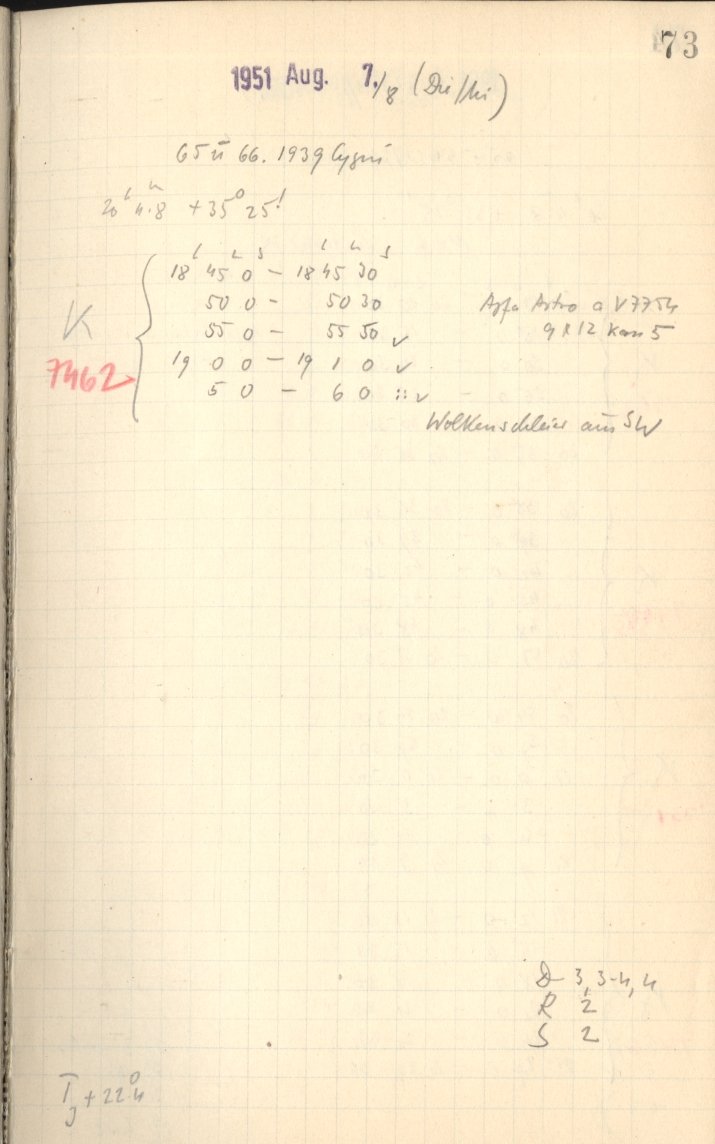 73
1951 Aug. 7./8 (Die/Mi)
65 u 66. 1939 Cygni
20ʰ 4ᵐ.8 +35° 25'
18ʰ 45ᵐ 0ˢ – 18ʰ 45ᵐ 30ˢ
50 0 – 50 30
55 0 – 55 50 v
19 0 0 – 19 1 0 v
5 0 – 6 0 :: v
K
7462
Agfa Astro a V7754
9 x 12 Kam 5
Wolkenschleier aus SW
D 3, 3-4, 4
R 2
S 2
T +22° 4